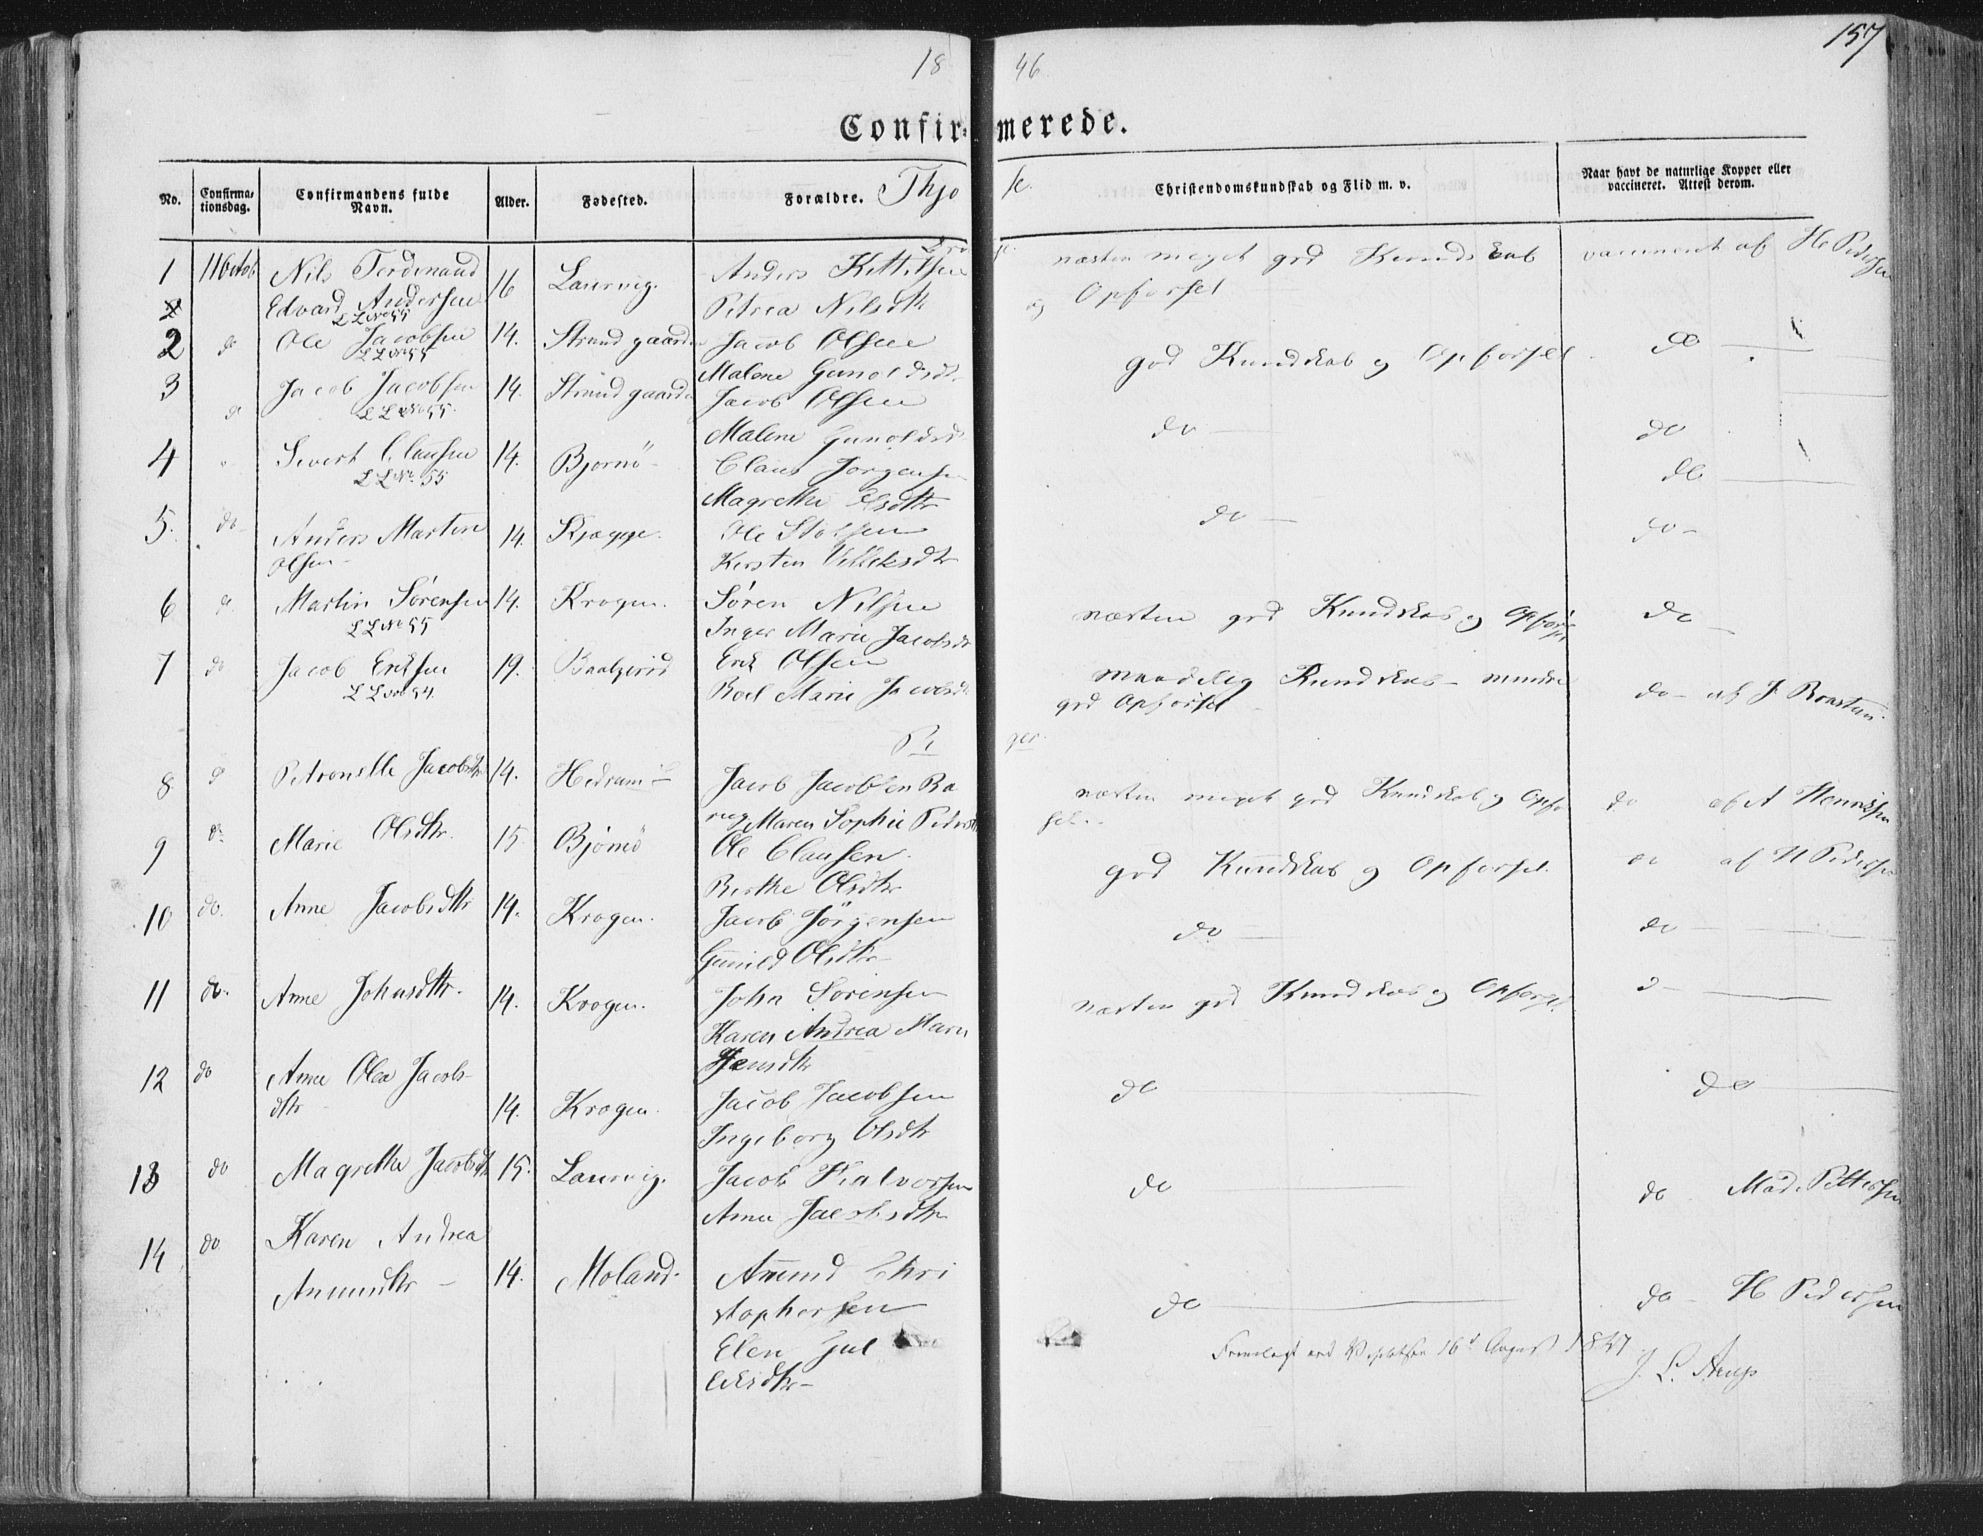 157
18 46
Confirmerede.
No. Confirmationsdag. Confirmandens fulde Navn. Alder. Fødested. Forældre. Christendomskundskab og Flid m. v. Naar havt de naturlige Kopper eller vaccineret. Attest derom.
Thjo
1 11 Octob Nils Ferdinand 16 Laurvig. Anders Kittilsen næsten meget god Kundskab vaccineret af H Pedersen
Edvard Andersen Petrea Nilsdtr og Opførsel
LL No 55
2 do Ole Jacobsen 14. Strandgaarden Jacob Olsen god Kundskab og Opførsel do
LL No 55 Malene Gunoldsdt
3 do Jacob Jacobsen 14. Strandgaarden Jacob Olsen do do
LL No 55. Malene Gunoldsd
4 Sivert Clausen 14. Bjornö Claus Jorgensen do
LL No 55 Magrethe Olsdtr
5. do Anders Martin 14. Skjægge. Ole do do
Olsen Kersten
6 do Martin Sörensen 14. Krogen. Sören Nilsen næsten god Kundskab og Opførsel do
LL No 55 Inger Marie Jacobsdt
7 do Jacob Eriksen 19. Erik Olsen maadelig Kundskab mindre do af J
LL No 54. Marie Jacobsdt god Opførsel
Pi ger.
8 do Petronelle Jacobsdtr 14. Jacob Jacobsen næsten meget god Kundskab og Opfør do af A Henriksen
Maren Sophie Pedersdtr sel.
9 do Marie Olsdtr. 15 Bjönnö Ole Clausen god Kundskab og Opførsel. do af H Pedersen
Berthe Olsdtr
10 do. Anne Jacobsdtr 14. Krogen. Jacob Jörgensen do do
Gunild Olsdtr
11 do. Anne Johnsdtr. 14. Krogen. John Sörensen næsten god Kundskab og Opførsel
Karen Andrea Marie
Jensdtr
12 do Anne Olea Jacobs- do do
dtr 14. Krogen. Jacob Jacobsen
Ingeborg Olsdtr
13 do Magrethe Jacobsdt 15. Laurvig. Jacob Halvorsen do do Mad. Pettersen
Anne Jacobsdtr
14 do Karen Andrea
Anundsdtr 14. Moland. Anund Chri do do H Pedersen
stophersen
Elen Gul
Fremlagt ved Visitatsen 16d August 1847.
J. L. Arup